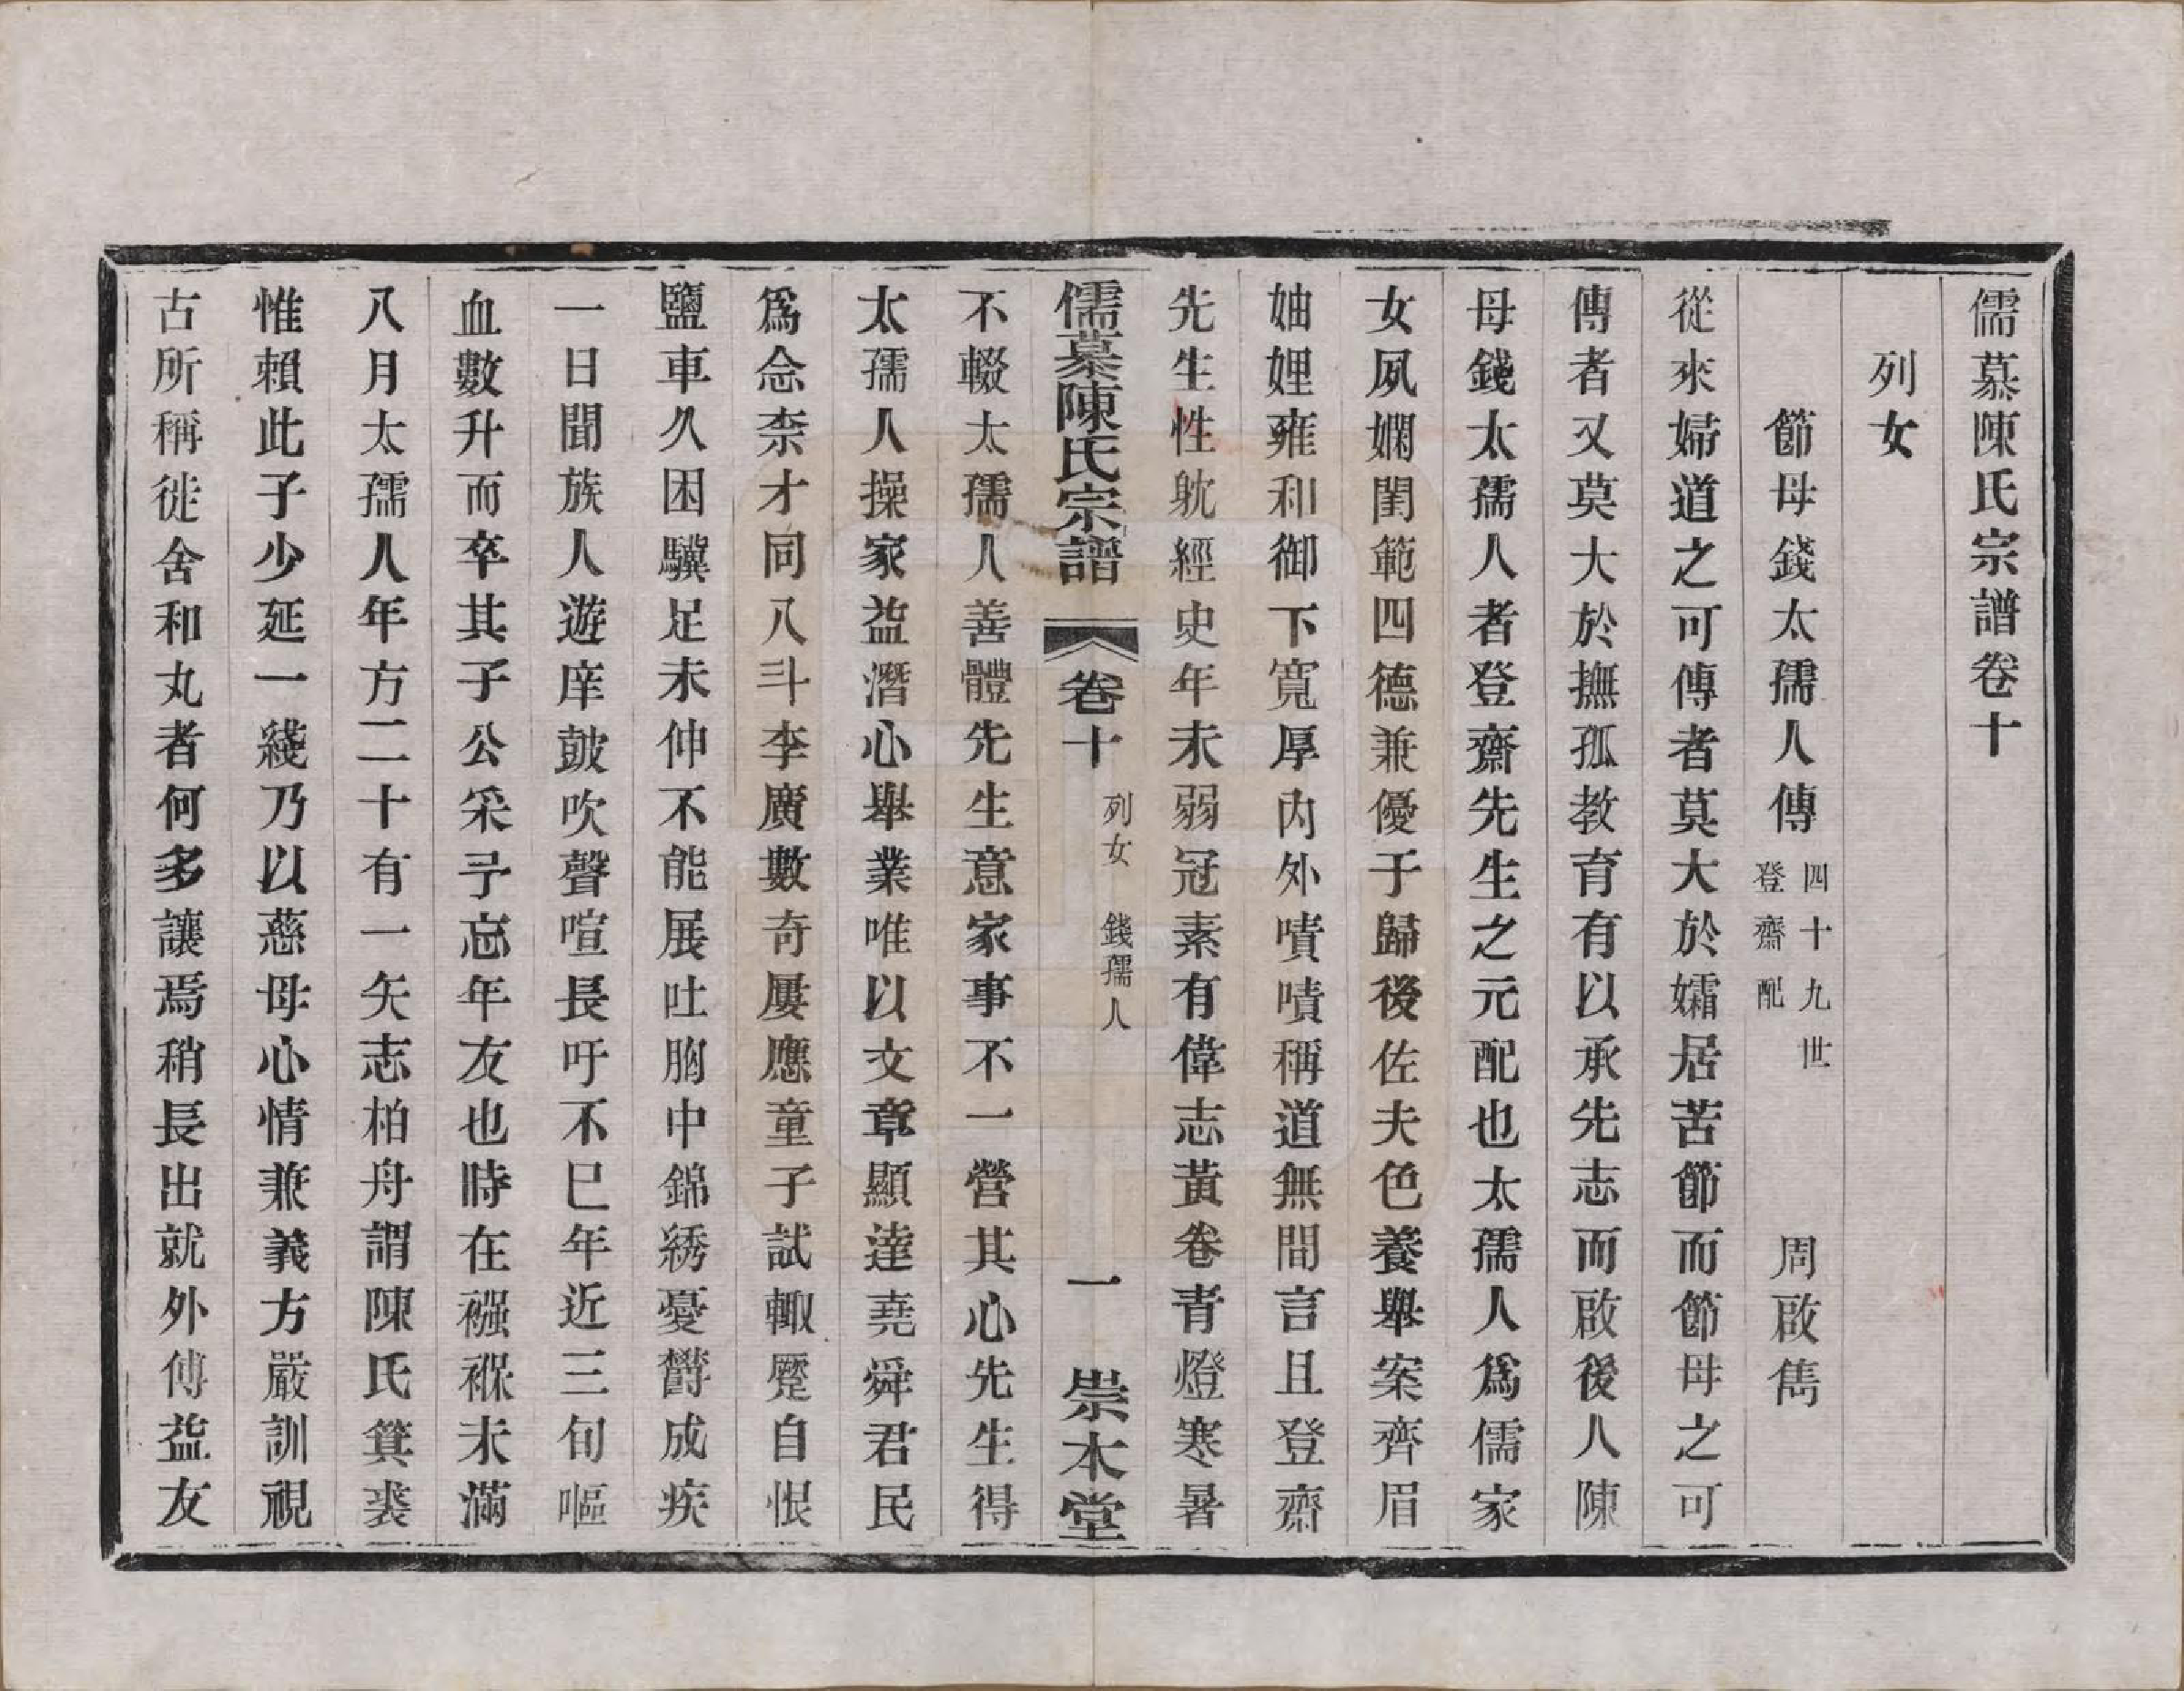 儒慕陳氏宗譜卷十
列女
節母錢太孺人傳 四十九世登齋配 周啟雋
從來婦道之可傳者莫大於孀居苦節而節母之可
傳者又莫大於撫孤教育有以承先志而啟後人陳
母錢太孺人者登齋先生之元配也太孺人爲儒家
女夙嫻閨範四德兼優于歸後佐夫色養舉案齊眉
妯娌雍和御下寬厚內外嘖嘖稱道無間言且登齋
先生性躭經史年未弱冠素有偉志黃卷青燈寒暑
儒慕陳氏宗譜 卷十 列女 錢孺人 一 崇本堂
不輟太孺人善體先生意家事不一營其心先生得
太孺人操家益潛心舉業唯以文章顯達堯舜君民
爲念柰才同八斗李廣數奇屢應童子試輙蹷自恨
鹽車久困驥足未伸不能展吐胸中錦綉憂欝成疾
一日聞族人遊庠皷吹聲喧長吁不已年近三旬嘔
血數升而卒其子公采予忘年友也時在襁褓未滿
八月太孺人年方二十有一矢志柏舟謂陳氏箕裘
惟賴此子少延一綫乃以慈母心情兼義方嚴訓視
古所稱徙舍和丸者何多讓焉稍長出就外傅益友